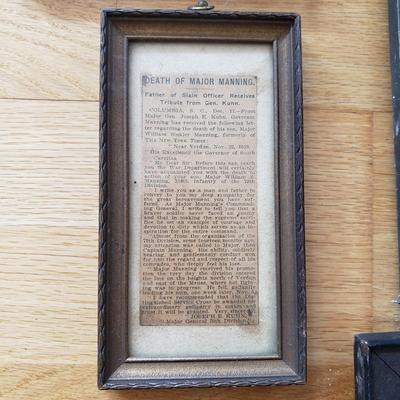 DEATH OF MAJOR MANNING.
Father of Slain Officer Receives
Tribute from Gen. Kuhn.
COLUMBIA, S. C., Dec. 17.—From
Major Gen. Joseph E. Kuhn, Governor
Manning has received the following let-
ter regarding the death of his son, Major
William Sinkler Manning, formerly of
THE NEW YORK TIMES:
"Near Verdun, Nov. 22, 1918.
"His Excellency the Governor of South
Carolina.
"My Dear Sir: Before this can reach
you the War Department will certainly
have acquainted you with the death in
action of your son, Major William S.
Manning, 316th Infantry of the 79th
Division.
"I write you as a man and father to
convey to you my deep sympathy for
the great bereavement you have suf-
fered. As Major Manning's Command-
ing General, I write to tell you that a
braver soldier never faced an enemy
and that in making the supreme sacri-
fice he set an example of courage and
devotion to duty which serves as an in-
spiration for the entire command.
"Almost from the organization of the
79th Division, some fourteen months ago,
my attention was called to Major, then
Captain Manning. His ability, soldierly
bearing, and gentlemanly conduct won
for him the regard and respect of all his
comrades, who deeply feel his loss.
"Major Manning received his promo-
tion the very day the division entered
the line on the heights north of Verdun
and east of the Meuse, where hot fight-
ing was in progress. He fell, gallantly
leading his men, one week later.
"I have recommended that the Dis-
tinguished Service Cross be awarded for
extraordinary gallantry in action and
trust it will be granted. Very sincerely,
JOSEPH E. KUHN,
"Major General 79th Division."